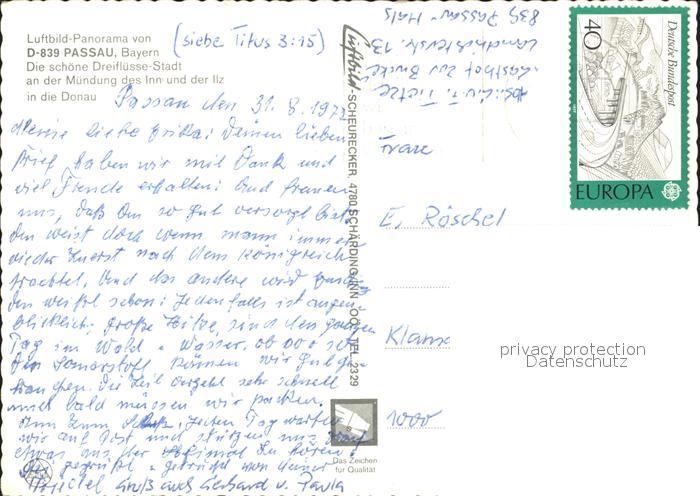 Luftbild-Panorama von
D-839 PASSAU, Bayern
Die schöne Dreiflüsse-Stadt
an der Mündung des Inn und der Ilz
in die Donau
(siehe Titus 3:15)
Passau den 31. 8. 197
Meine liebe Erika! Deinen lieben
Brief haben wir mit Dank und
viel Freude erhalten! Und freuen
uns, daß Du so gut versorgt bist
du weist doch wenn mann immer
wieder zuerst nach dem Königreich
trachtet. Und das andere wird
du weißt schon! Jedenfalls ist augen-
blicklich große Hitze, sind den ganzen
Tag im Wald + Wasser,
Den Sauerstoff können wir gut
Die Zeit vergeht sehr schnell
und bald müssen wir packen,
dann zum Jeden Tag warten
wir auf Post und stürzen uns drauf
etwas aus der zu hören!
gegrüßt + gedrückt von deiner
Gruß auch Gerhard u. Paula
Luftbild-SCHEURECKER, 4780 SCHÄRDING/INN, OÖ, TEL. 2329
Abs. Tietze
Gasthof zur Brücke
13
839 Passau-Hals
Deutsche Bundespost
40
EUROPA
CEPT
Frau
E. Röschel
1000
Das Zeichen
für Qualität
privacy protection
Datenschutz